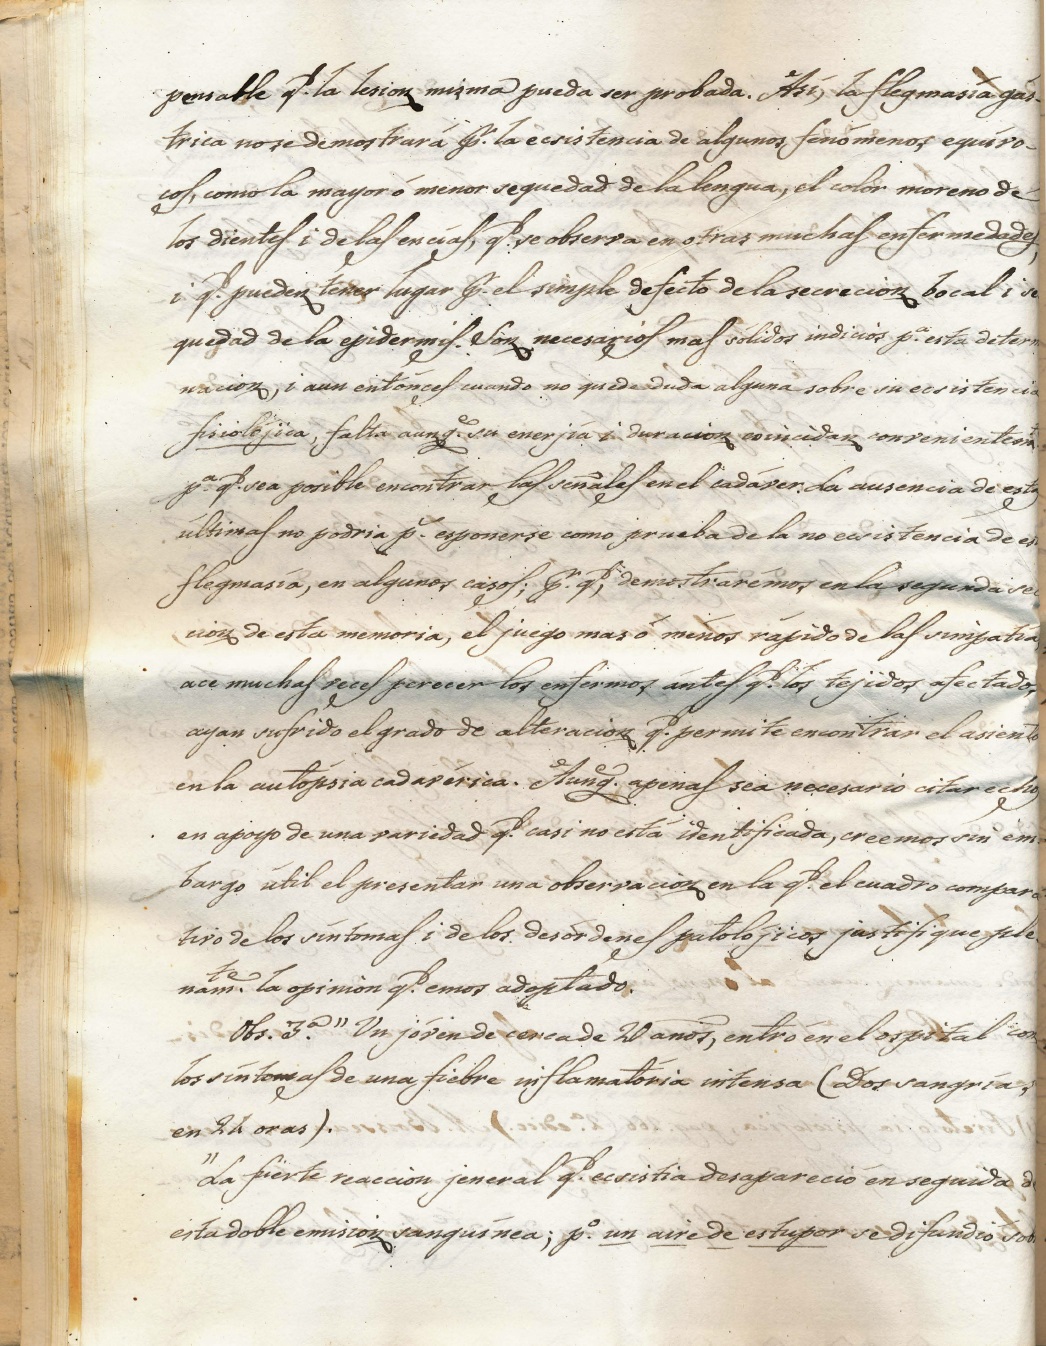 pensable q.e la lesion misma pueda ser probada. Así, la flegmasía gás-
trica no se demostrará p.r la ecsistencia de algunos fenómenos equívo-
cos, como la mayor ó menor sequedad de la lengua, el color moreno de
los dientes i de las encías, q.e se observa en otras muchas enfermedades,
i q.e pueden tener lugar p.r el simple defecto de la secrecion bocal i se
quedad de la epidermis. Son necesarios mas sólidos indicios p.a esta determ
nacion, i aun entónces cuando no quede duda alguna sobre su ecsistencia
fisiolójica, falta aunq.e su enerjía i duracion coincidan convenientem
p.a q.e sea posible encontrar las señales en el cadáver. La ausencia de estas
últimas no podria p.s esponerse como prueba de la no ecsistencia de es
flegmasía, en algunos casos; p.r q.e, demostrarémos en la segunda sec
cion de esta memoria, el juego mas ó ménos rápido de las simpatías
ace muchas veces perecer los enfermos ántes q.e los tejidos afectados
ayan sufrido el grado de alteracion q.e permite encontrar el asiento
en la autópsia cadavérica. Aunq.e apenas sea necesario citar echos
en apoyo de una variedad q.e casi no está identificada, creemos sin em-
bargo útil el presentar una observacion en la q.e el cuadro compara
tivo de los síntomas i de los desórdenes patolójicos justifique ple
nam.te la opinion q.e emos adoptado.
Obs. 3.a " Un jóven de cerca de 20 años, entró en el ospital con
los síntomas de una fiebre inflamatória intensa (Dos sangrías
en 24 oras).
"La fuerte reaccion jeneral q.e ecsistia desapareció en seguida de
esta doble emision sanguínea; p.o un aire de estupor se difundió sob